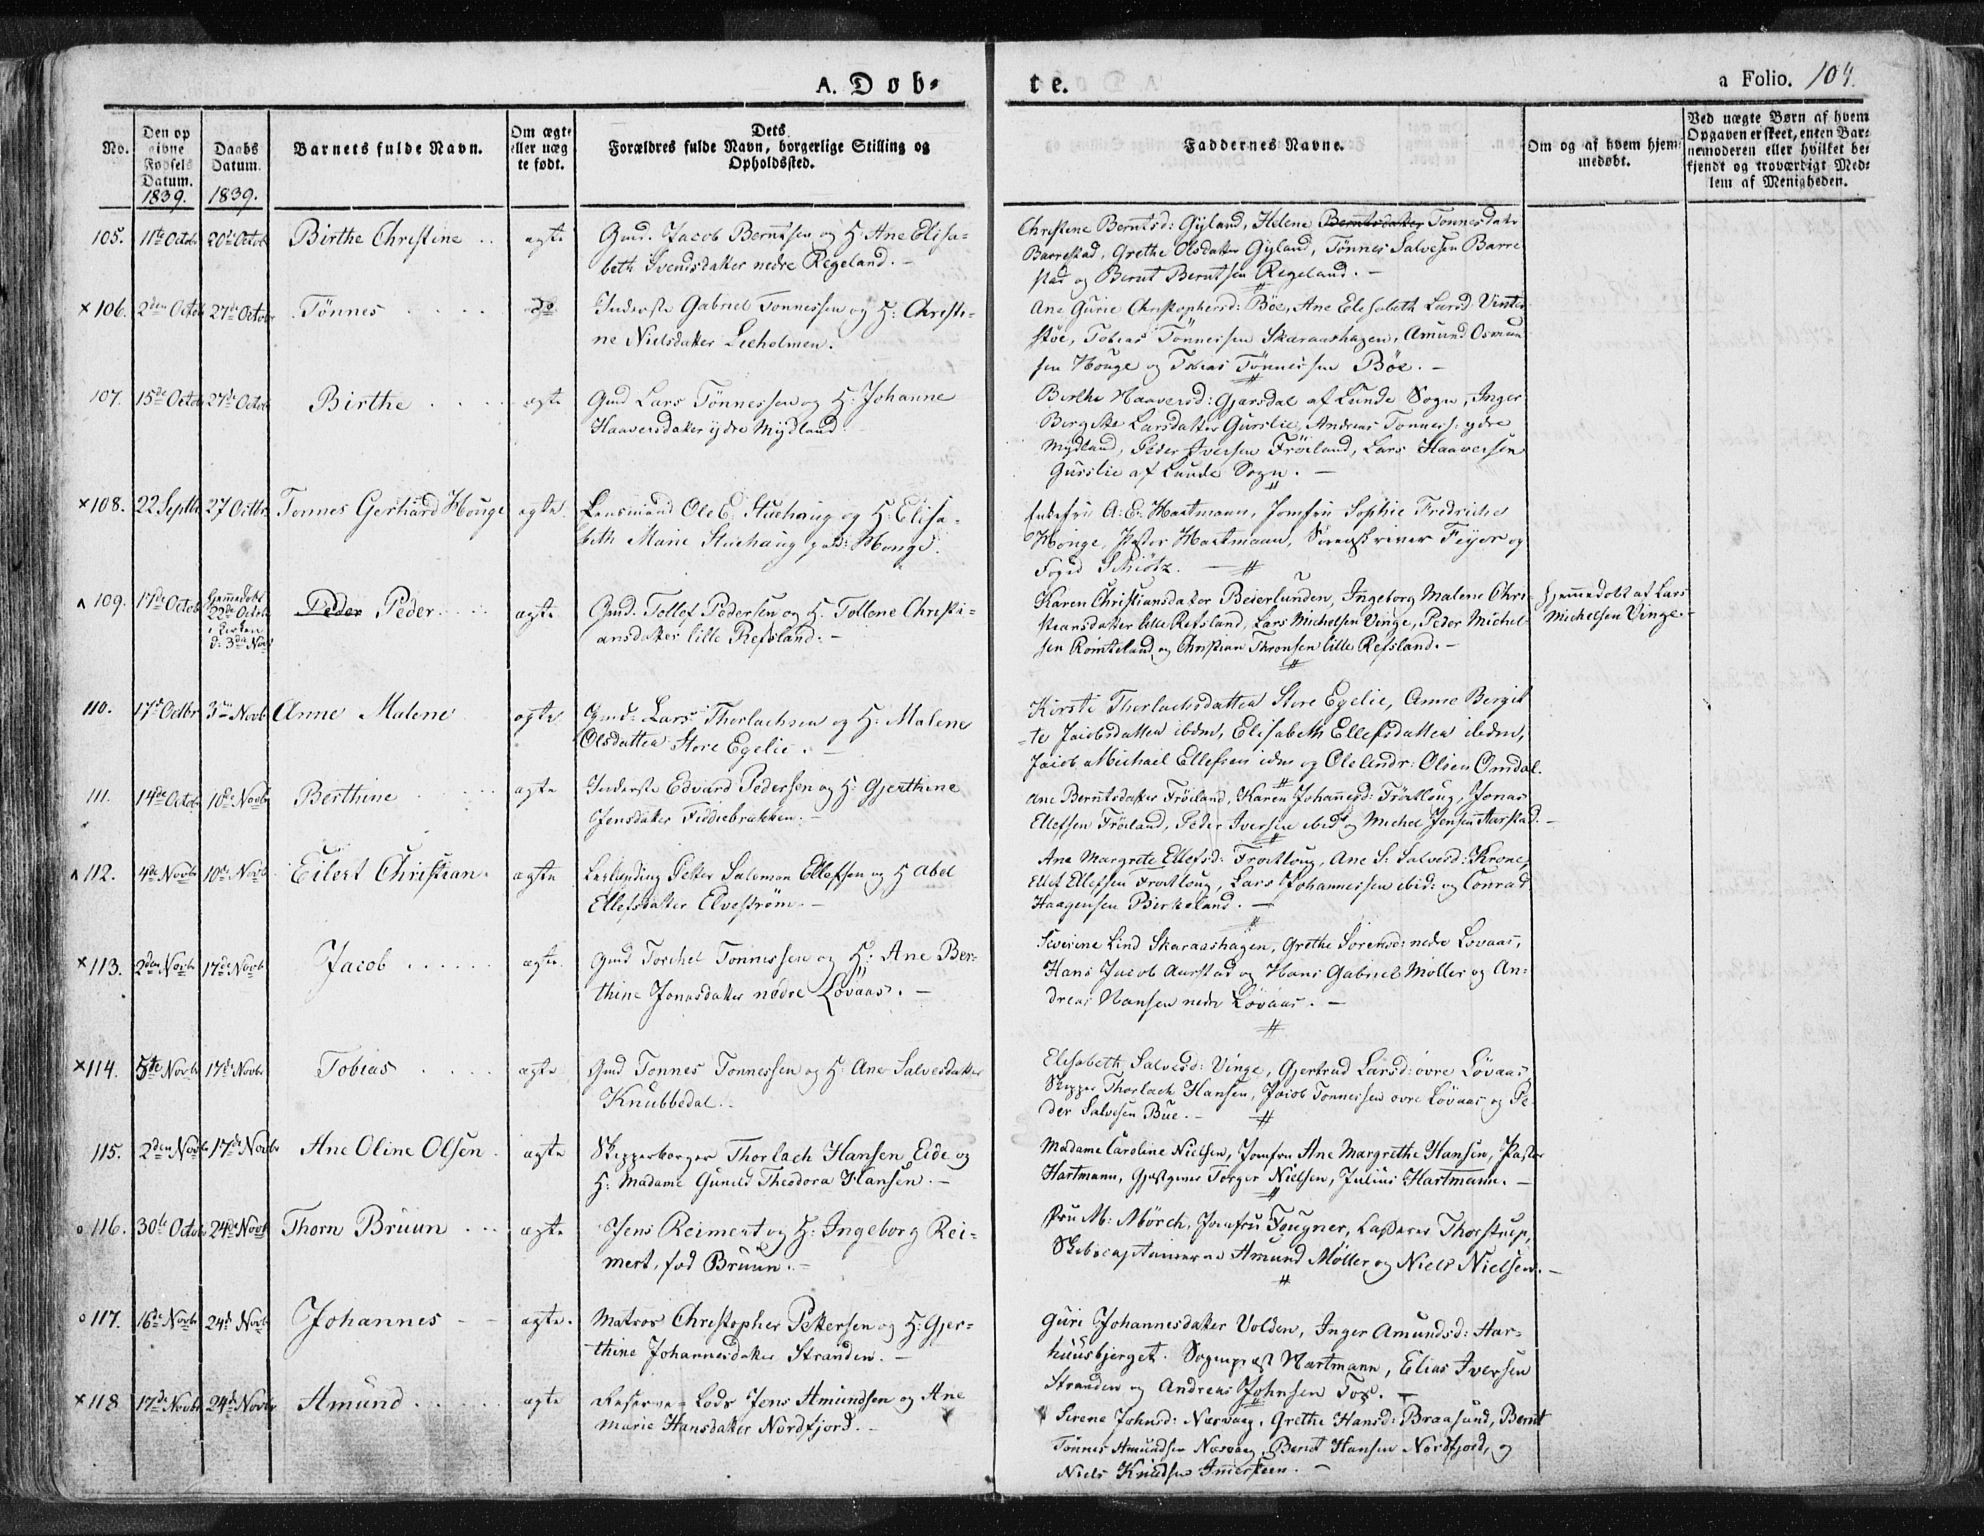 A. Døb-
te.
a Folio. 104.
No.
Den op
givne
Fødsels
Datum.
1839.
Daabs
Datum.
1839.
Barnets fulde Navn.
Om ægte
eller uæg
te født.
Dets
Forældres fulde Navn, borgerlige Stilling og
Opholdssted.
Faddernes Navne.
Om og af hvem hjem
medøbt.
Ved uægte Børn af hvem
Opgaven er skeet, enten Bar-
nemoderen eller hvilket be-
kjendt og troværdigt Med-
lem af Menigheden.
105. 11te Octob 20de Octob Birthe Christine ægte
Gmd. Jacob Berntsen og H: Ane Elisa-
beth Svendsdatter nedre Regeland. -
Christene Berntsd: Gyland, Helene Berntsdatter Tønnesdatr
Barrestad, Grethe Olsdatter Gyland, Tønnes Salvesen Barre
stad og Bernt Berntsen Regeland. -
×106. 2den Octob 27de Octobr Tönnes do
Inderste Gabriel Tønnessen og H: Christi-
ne Nielsdatter Leeholmen.
Ane Gurie Christophersd: Böe, Ane Elesabeth Larsd Vinter
støe, Tobias Tönnessen Skaraashagen, Amund Osmun
sen Houge og Tobias Tönnessen Böe. -
107. 15de Octob 27de Octob Birthe ægte
Gmd Lars Tönnessen og H: Johanne
Haaversdatter ydre Mydland.
Birthe Haaversd: Gjersdal af Lunde Sogn, Inger
Birgitte Larsdatter Gurslie, Andreas Tønness: ydre
Mydland, Peder Iversen Fröiland, Lars Haaversen
Gurslie af Lunde Sogn. -
×108. 22 Septbr 27 Octbr Tønnes Gerhard Houge ægte
Lensmand Ole E. Stuehaug og H: Elisa-
beth Marie Stuehaug, fød: Houge.
Enkefru A. E. Hartmann, Jomfru Sophie Fredriche
Houge, Pastor Hartmann, Sorenskriver Feyer og
Foged Schiötz. -
109. 17de Octob Hjemmedøbt
22de Octob
i Kirken
d: 3de Nov Peder Peder ægte
Gmd. Tollef Pedersen og H. Tollene Christi-
ansdatter lille Refsland. -
Karen Christiansdatter Beierlunden, Ingeborg Malene Chri-
stiansdatter lille Refsland, Lars Michelsen Vinge, Peder Michel-
sen Römteland og Christian Thronsen lille Refsland. -
Hjemmedøbt af Lars
Michelsen Vinge. -
110. 17de Octbr 3die Novb Anne Malene ægte
Gmd: Lars Therlachsen og H: Malene
Olsdatter Store Egelie. -
Kirsti Therlachsdatter Store Egelie, Anne Bergit-
te Jacobsdatter ibdm, Elisabeth Ellefsdatter ibdm,
Jacob Michael Ellefsen idm og Ole Andr: Olsen Omdal.
111. 14de Octob 10de Novb Berthine ægte
Inderste Edvard Pedersen og H: Gjerthine
Jensdatter Fiddiebrækken. -
Ane Berntsdatter Fröiland, Karen Johannesd: Fröitloug, Jonas
Ellefsen Fröiland, Peder Iversen ibid og Michel Jensen Aarstad. -
112. 4de Novb 10de Novb Eilert Christian ægte
Leylænding Petter Salomon Ellefsen og H Abel
Ellefsdatter Elveström. -
Ane Margrete Ellefsd: Frøitloug, Ane S: Salvesd: Krone,
Ellef Ellefsen Frøitloug, Lars Johannessen ibid: og Conrad
Haagensen Birkeland. -
×113. 2den Novb 17de Novb Jacob ægte
Gmd Torchel Tønnessen og H: Ane Ber-
thine Jonasdatter nedre Lövaas. -
Severine Lind Skaraashagen, Grethe Sörensd: nedre Lovaas,
Hans Jacob Aarstad og Hans Gabriel Møller og An-
dreas Hansen nedre Lövaas. -
×114. 5te Novb 17de Novbr Tobias ægte
Gmd Tønnes Tønnessen og H: Ane Salvesdatter
Knubbedal. -
Elisabeth Salvesd: Vinge, Gjertrud Larsd: øvre Lövaas
Skipper Thorlach Hansen, Jacob Tønnessen øvre Lövaas og Pe-
der Salvesen Bue. -
115. 2den Novb 17de Novbr Ane Oline Olsen ægte
Skipperborger Thorlach Hansen Eide og
H. Madame Guneld Theodora Hansen. -
Madame Caroline Nielsen, Jomfru Ane Margrethe Hansen, Pastor
Hartmann, Gjæstgiver Torger Nielsen, Julius Hartmann. -
o 116. 30te Octob 24de Novb Thorn Bruun ægte
Jens Reimert og H: Ingeborg Rei-
mert, fød Bruun. -
Fru M: Mörch, Jomfru Fougner, Tharstrup,
Skibscaptainerne Amund Møller og Niels Nielsen. -
o 117. 16de Novb 24de Novb Johannes ægte.
Matros Christopher Pettersen og H: Gjer-
thine Johannesdatter Stranden. -
Guri Johannesdatter Volden, Inger Amundsd: Aar-
huusbjerget. Sognepræst Hartmann, Elias Iversen
Stranden og Andreas Johnsen Fox. -
×118 17de Novbr 24de Novbr Amund ægte
Reserve-Lods Jens Amundsen og Ane
Marie Hansdatter Nordfjord. -
Serene Johnsd: Næsvaag, Grethe Hansd: Braasund, Bernt
Tønnes Amundsen Næsvaag, Bernt Hansen Nordfjord, og
Niels Knudsen Immersteen. -